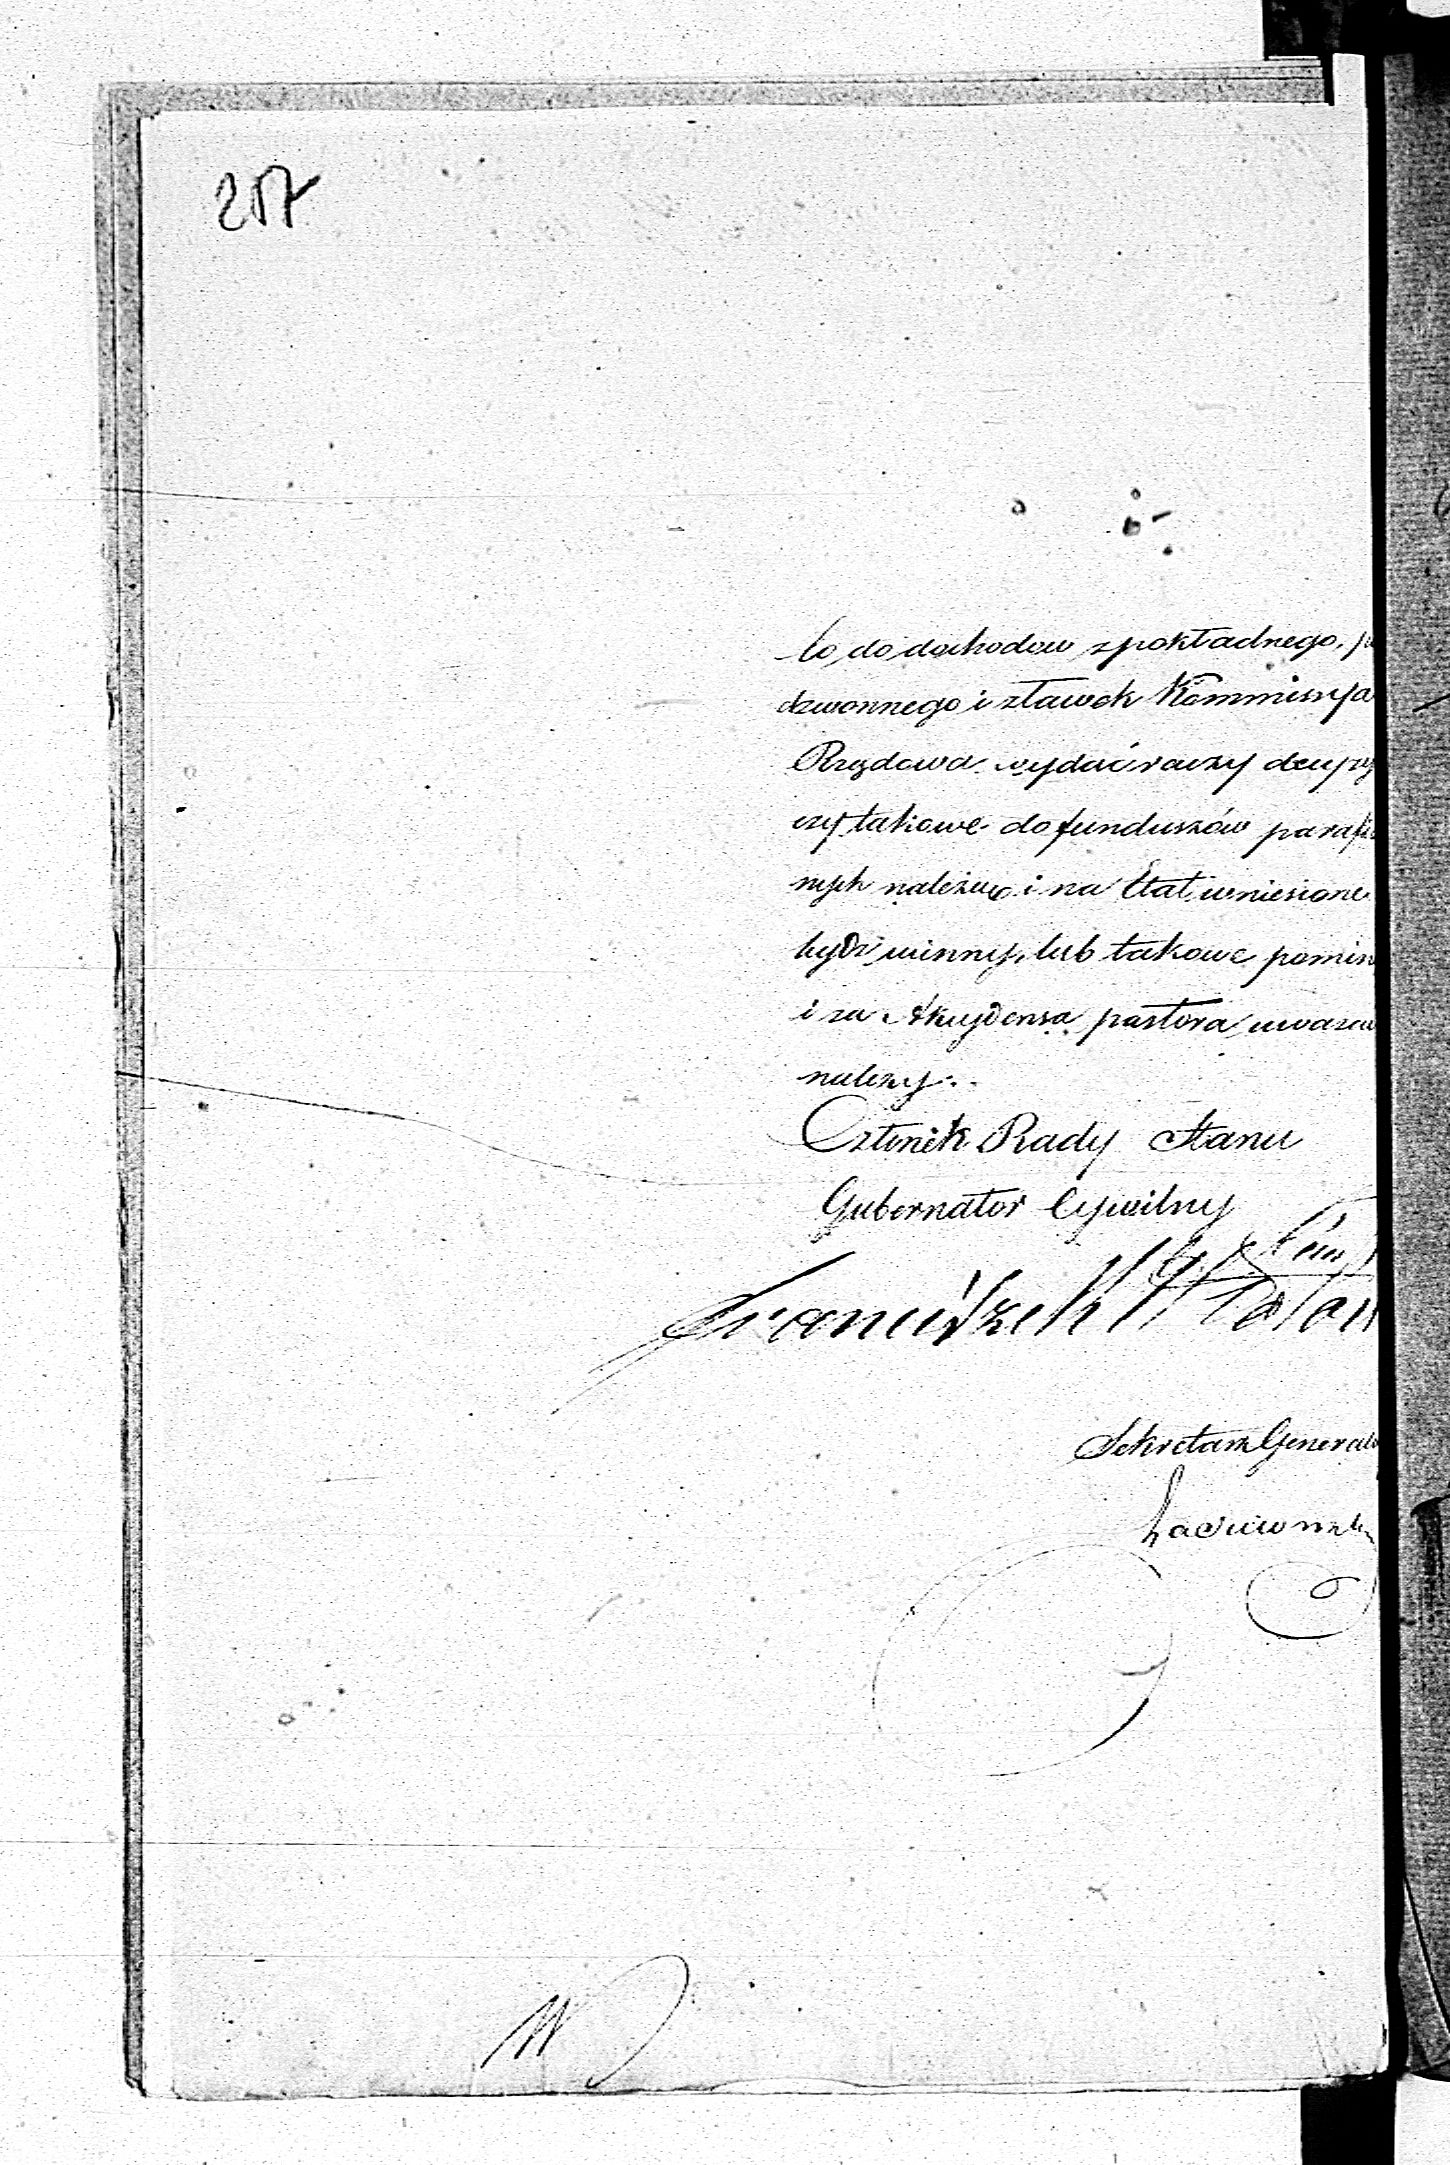 217
to do dochodow z pokładnego,
dzwonnego i z ławek Kommissya
Rządowa wydać raczy decyzyą
czy takowe do funduszów parafi
nych należeć i na Etat wniesione
bydź winny, lub takowe pomin
i za Akcydensa pastora uważać
należy.
Członek Rady Stanu
Gubernator Cywilny
Franciszek
Sekretarz General